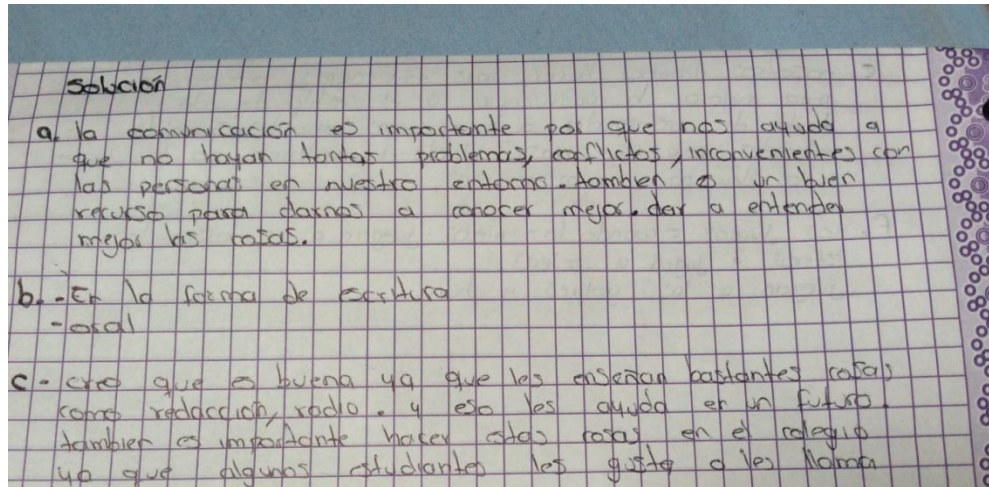 Solución
a. la comunicación es importante por que nos ayuda a
que no hayan tantas problemas, conflictos, inconvenientes con
las personas en nuestro entorno. tambien es un buen
recurso para darnos a conocer mejor. dar a entender
mejor las cosas.
b. - En la forma de escritura
- oral
c - creo que es buena ya que les enseñan bastantes cosas
como redacción, radio. y eso les ayuda en un futuro.
tambien es importante hacer estas cosas en el colegio
ya que algunos estudiantes les gusta o les llama